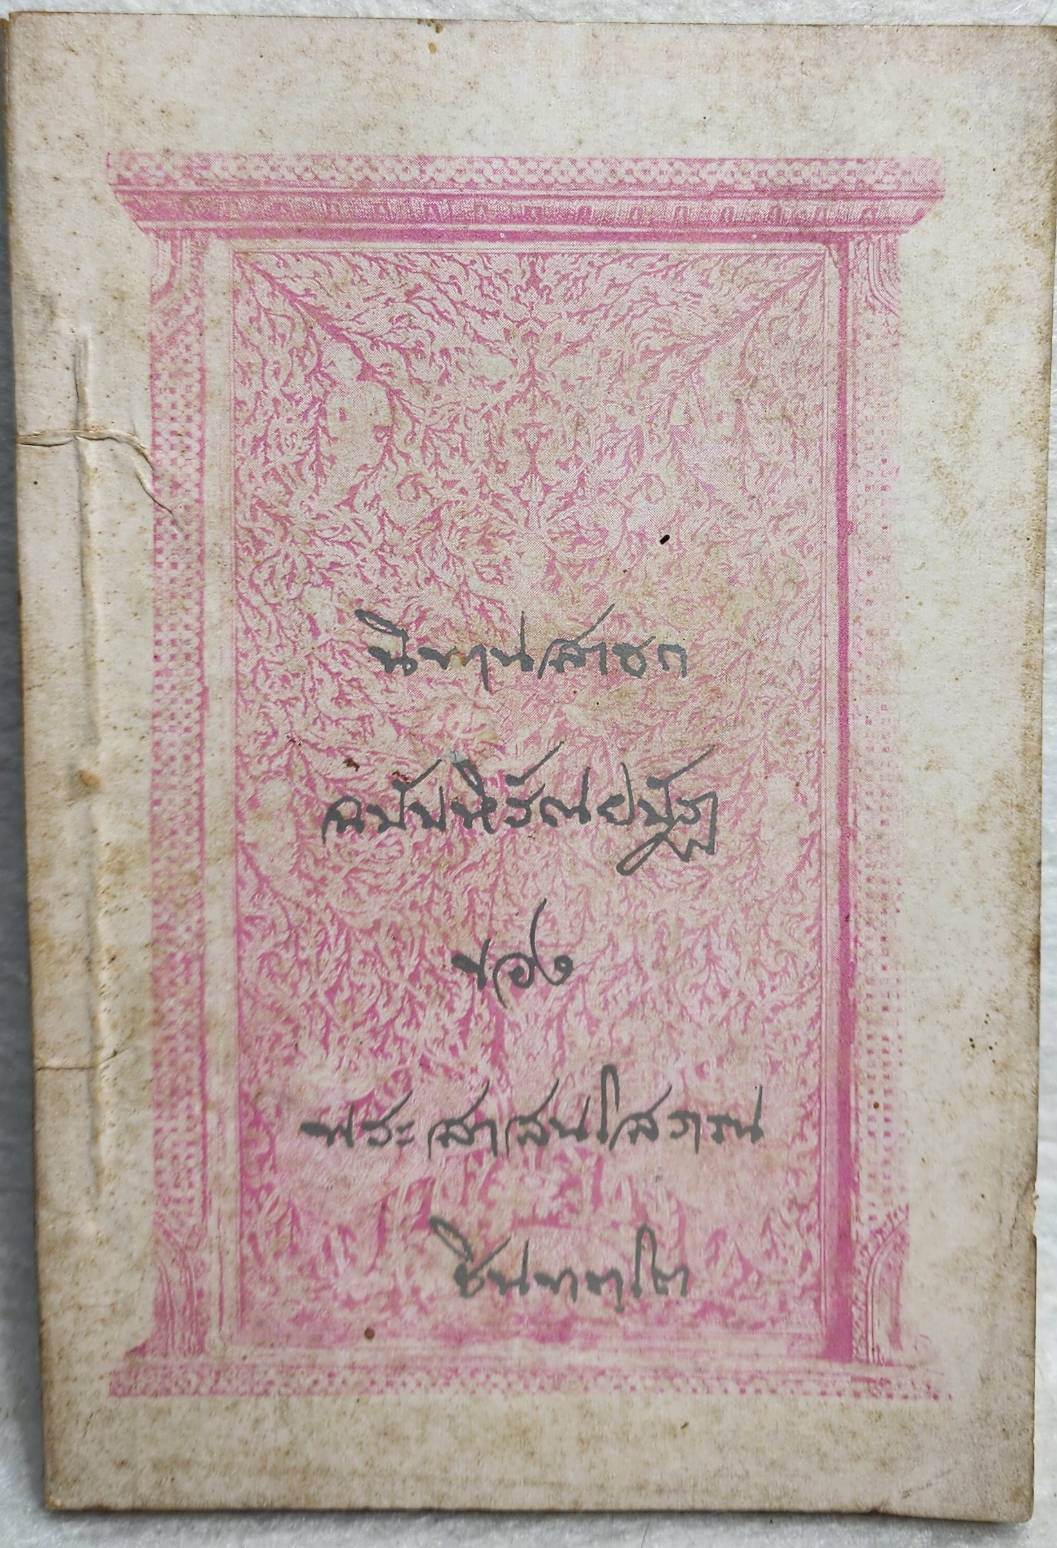 นิทานสาธก
ฉบับหิรัณยบัฏ
ของ
พระสาสนโสภณ
ชินทตฺโต